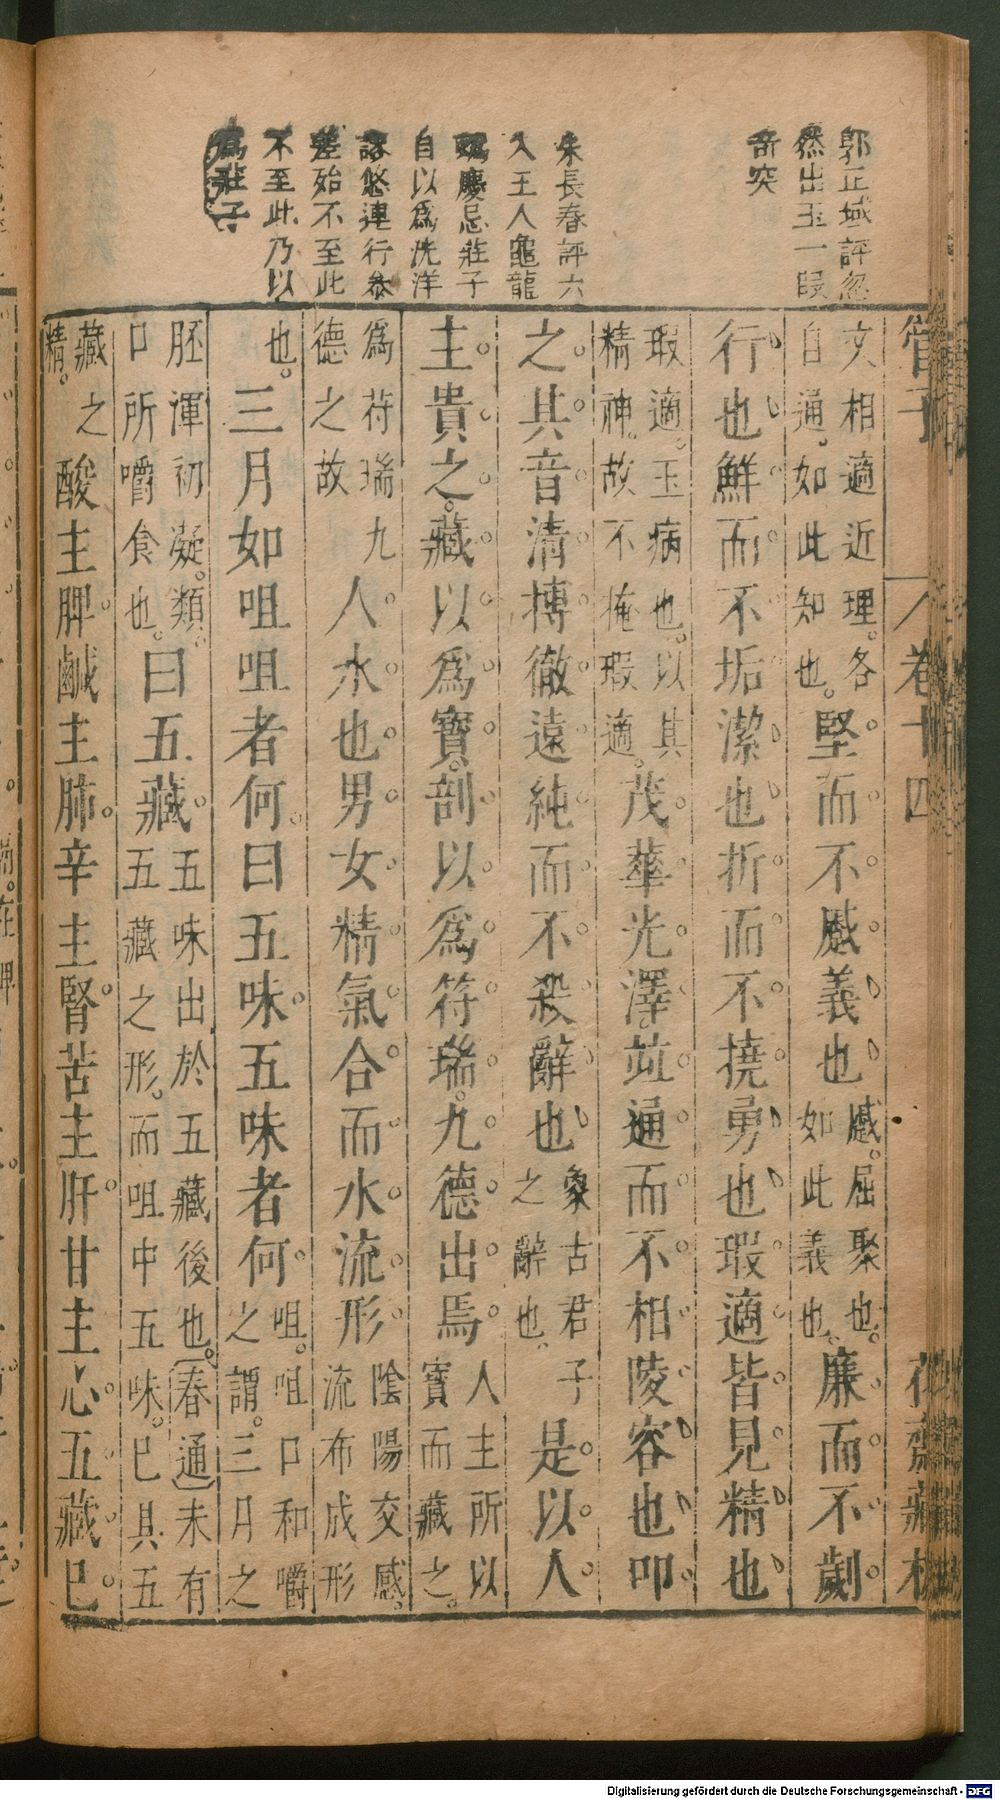 郭正域評忽
然出玉一段
奇突
朱長春評六
入王人龜龍
慶忌莊子
自以爲洸洋
謬悠連行叅
差殆不至此
不至此乃以
爲莊子
管子 卷十四 花齋藏板
文相適近理。各自通。如此知也。堅而不蹙義也蹙。屈聚也。如此義也。廉而不劌
行也鮮而不垢潔也折而不撓勇也瑕適皆見精也
瑕適。玉病也。以其精神。故不掩瑕適。茂華光澤竝通而不相陵容也叩
之其音清搏徹遠純而不殺辭也象古君子之辭也。是以人
主貴之。藏以爲寶。剖以爲符瑞。九德出焉人主所以寶而藏之。
爲符瑞九德之故人水也男女精氣合而水流形陰陽交感。流布成形
也。三月如咀咀者何。曰五味。五味者何。咀。咀口和嚼之謂。三月之
胚渾初凝。類口所嚼食也。曰五藏。五味出於五藏後也。(春通)未有五藏之形。而咀中五味。已具五
藏之精。酸主脾。鹹主肺。辛主腎。苦主肝。甘主心。五藏。已
Digitalisierung gefördert durch die Deutsche Forschungsgemeinschaft - DFG